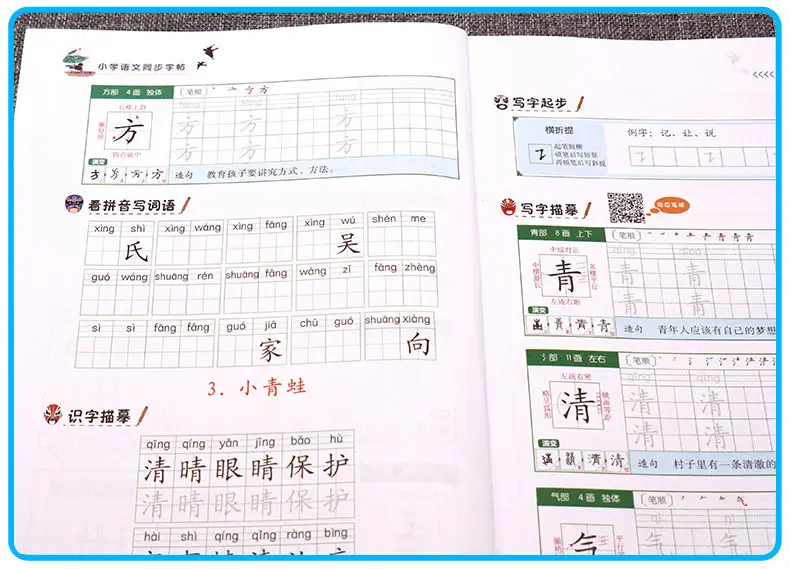 小学语文同步字帖
方部 4画 独体
〔笔顺〕
长横上斜
方
钩点居中
演变
造句 教育孩子要讲究方式、方法。
看拼音写词语
xìng shì xìng wáng xìng fāng xìng wú shén me
氏 吴
guó wáng shuāng rén shuāng fāng wáng zǐ fāng zhèng
sì sì fāng fāng guó jiā chū guó shuāng xiàng
家 向
3. 小青蛙
识字描摹
qīng qíng yǎn jīng bǎo hù
清 晴 眼 睛 保 护
清 晴 眼 睛 保 护
hài shì qíng qǐng ràng bìng
<<<<
写字起步
横折提
例字：记、让、说
起笔短横
顿笔后写短竖
再顿笔后写斜提
写字描摹
动态笔顺
青部 8画 上下
〔笔顺〕
中线对正
中横最长
青
多横平行
左连右断
演变
造句 青年人应该有自己的梦想
氵部 11画 左右
〔笔顺〕
左疏右密
略呈弧形
清
横画等距
演变
造句 村子里有一条清澈的
气部 4画 独体
〔笔顺〕
气